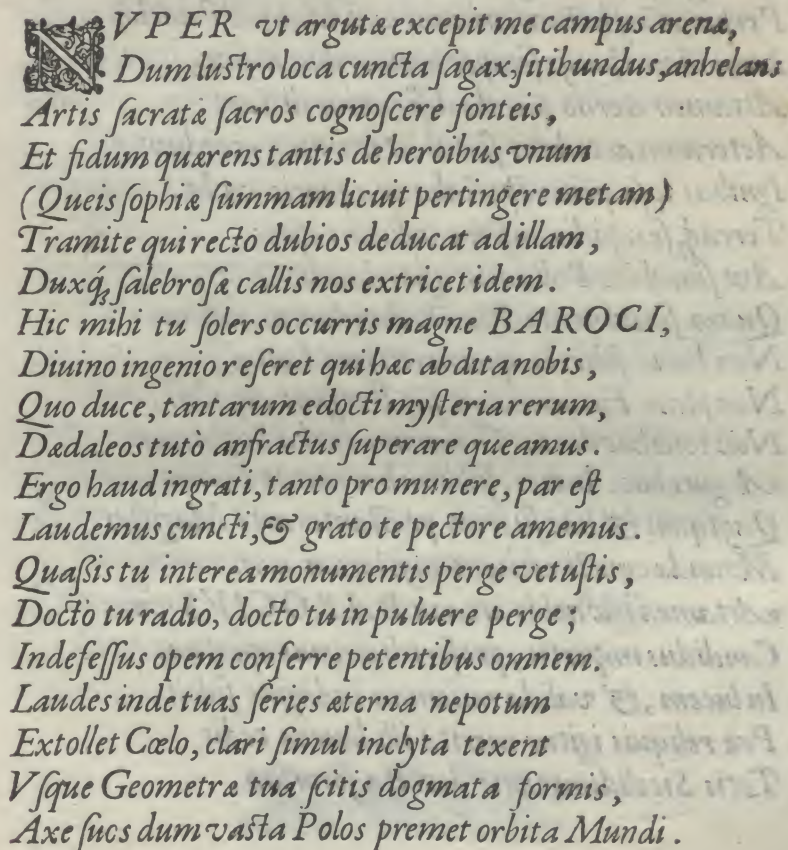 NVPER vt argutæ excepit me campus arenæ,
Dum lustro loca cuncta sagax, sitibundus, anhelans
Artis sacratæ sacros cognoscere fonteis,
Et fidum quærens tantis de heroibus vnum
(Queis sophiæ summam licuit pertingere metam)
Tramite qui recto dubios deducat ad illam,
Duxq́; salebrosæ callis nos extricet idem.
Hic mihi tu solers occurris magne BAROCI,
Diuino ingenio referet qui hæc abdita nobis,
Quo duce, tantarum edocti mysteria rerum,
Dædaleos tutò anfractus superare queamus.
Ergo haud ingrati, tanto pro munere, par est
Laudemus cuncti, & grato te pectore amemus.
Quaßis tu interea monumentis perge vetustis,
Docto tu radio, docto tu in puluere perge;
Indefessus opem conferre petentibus omnem.
Laudes inde tuas series æterna nepotum
Extollet Cœlo, clari simul inclyta texent
Vsque Geometræ tua scitis dogmata formis,
Axe sucs dum vasta Polos premet orbita Mundi.